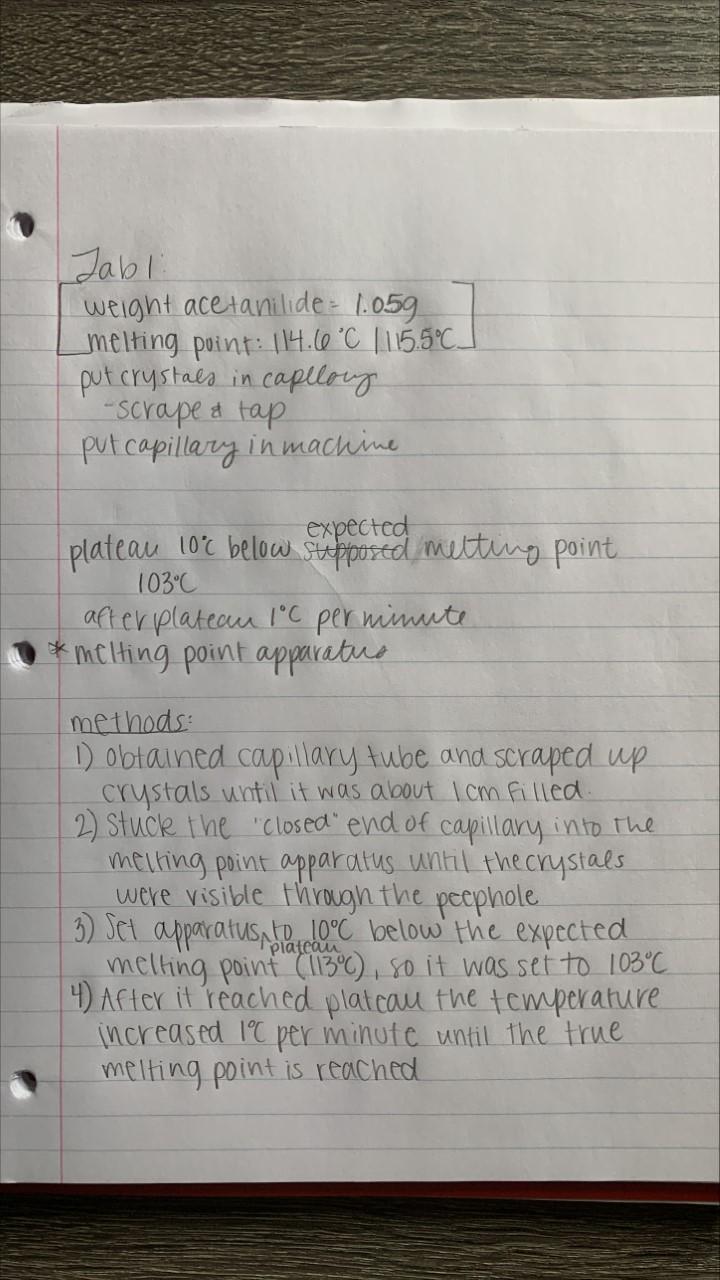 Lab 1:
weight acetanilide = 1.05g
melting point: 114.6°C | 115.5°C
put crystals in capllary
- scrape & tap
put capillary in machine
expected
plateau 10°C below supposed melting point
103°C
after plateau 1°C per minute
* melting point apparatus
methods:
1) obtained capillary tube and scraped up
crystals until it was about 1cm filled.
2) Stuck the "closed" end of capillary into the
melting point apparatus until the crystals
were visible through the peephole
3) Set apparatus ^ to 10°C below the expected
plateau
melting point (113°C), so it was set to 103°C
4) After it reached plateau the temperature
increased 1°C per minute until the true
melting point is reached